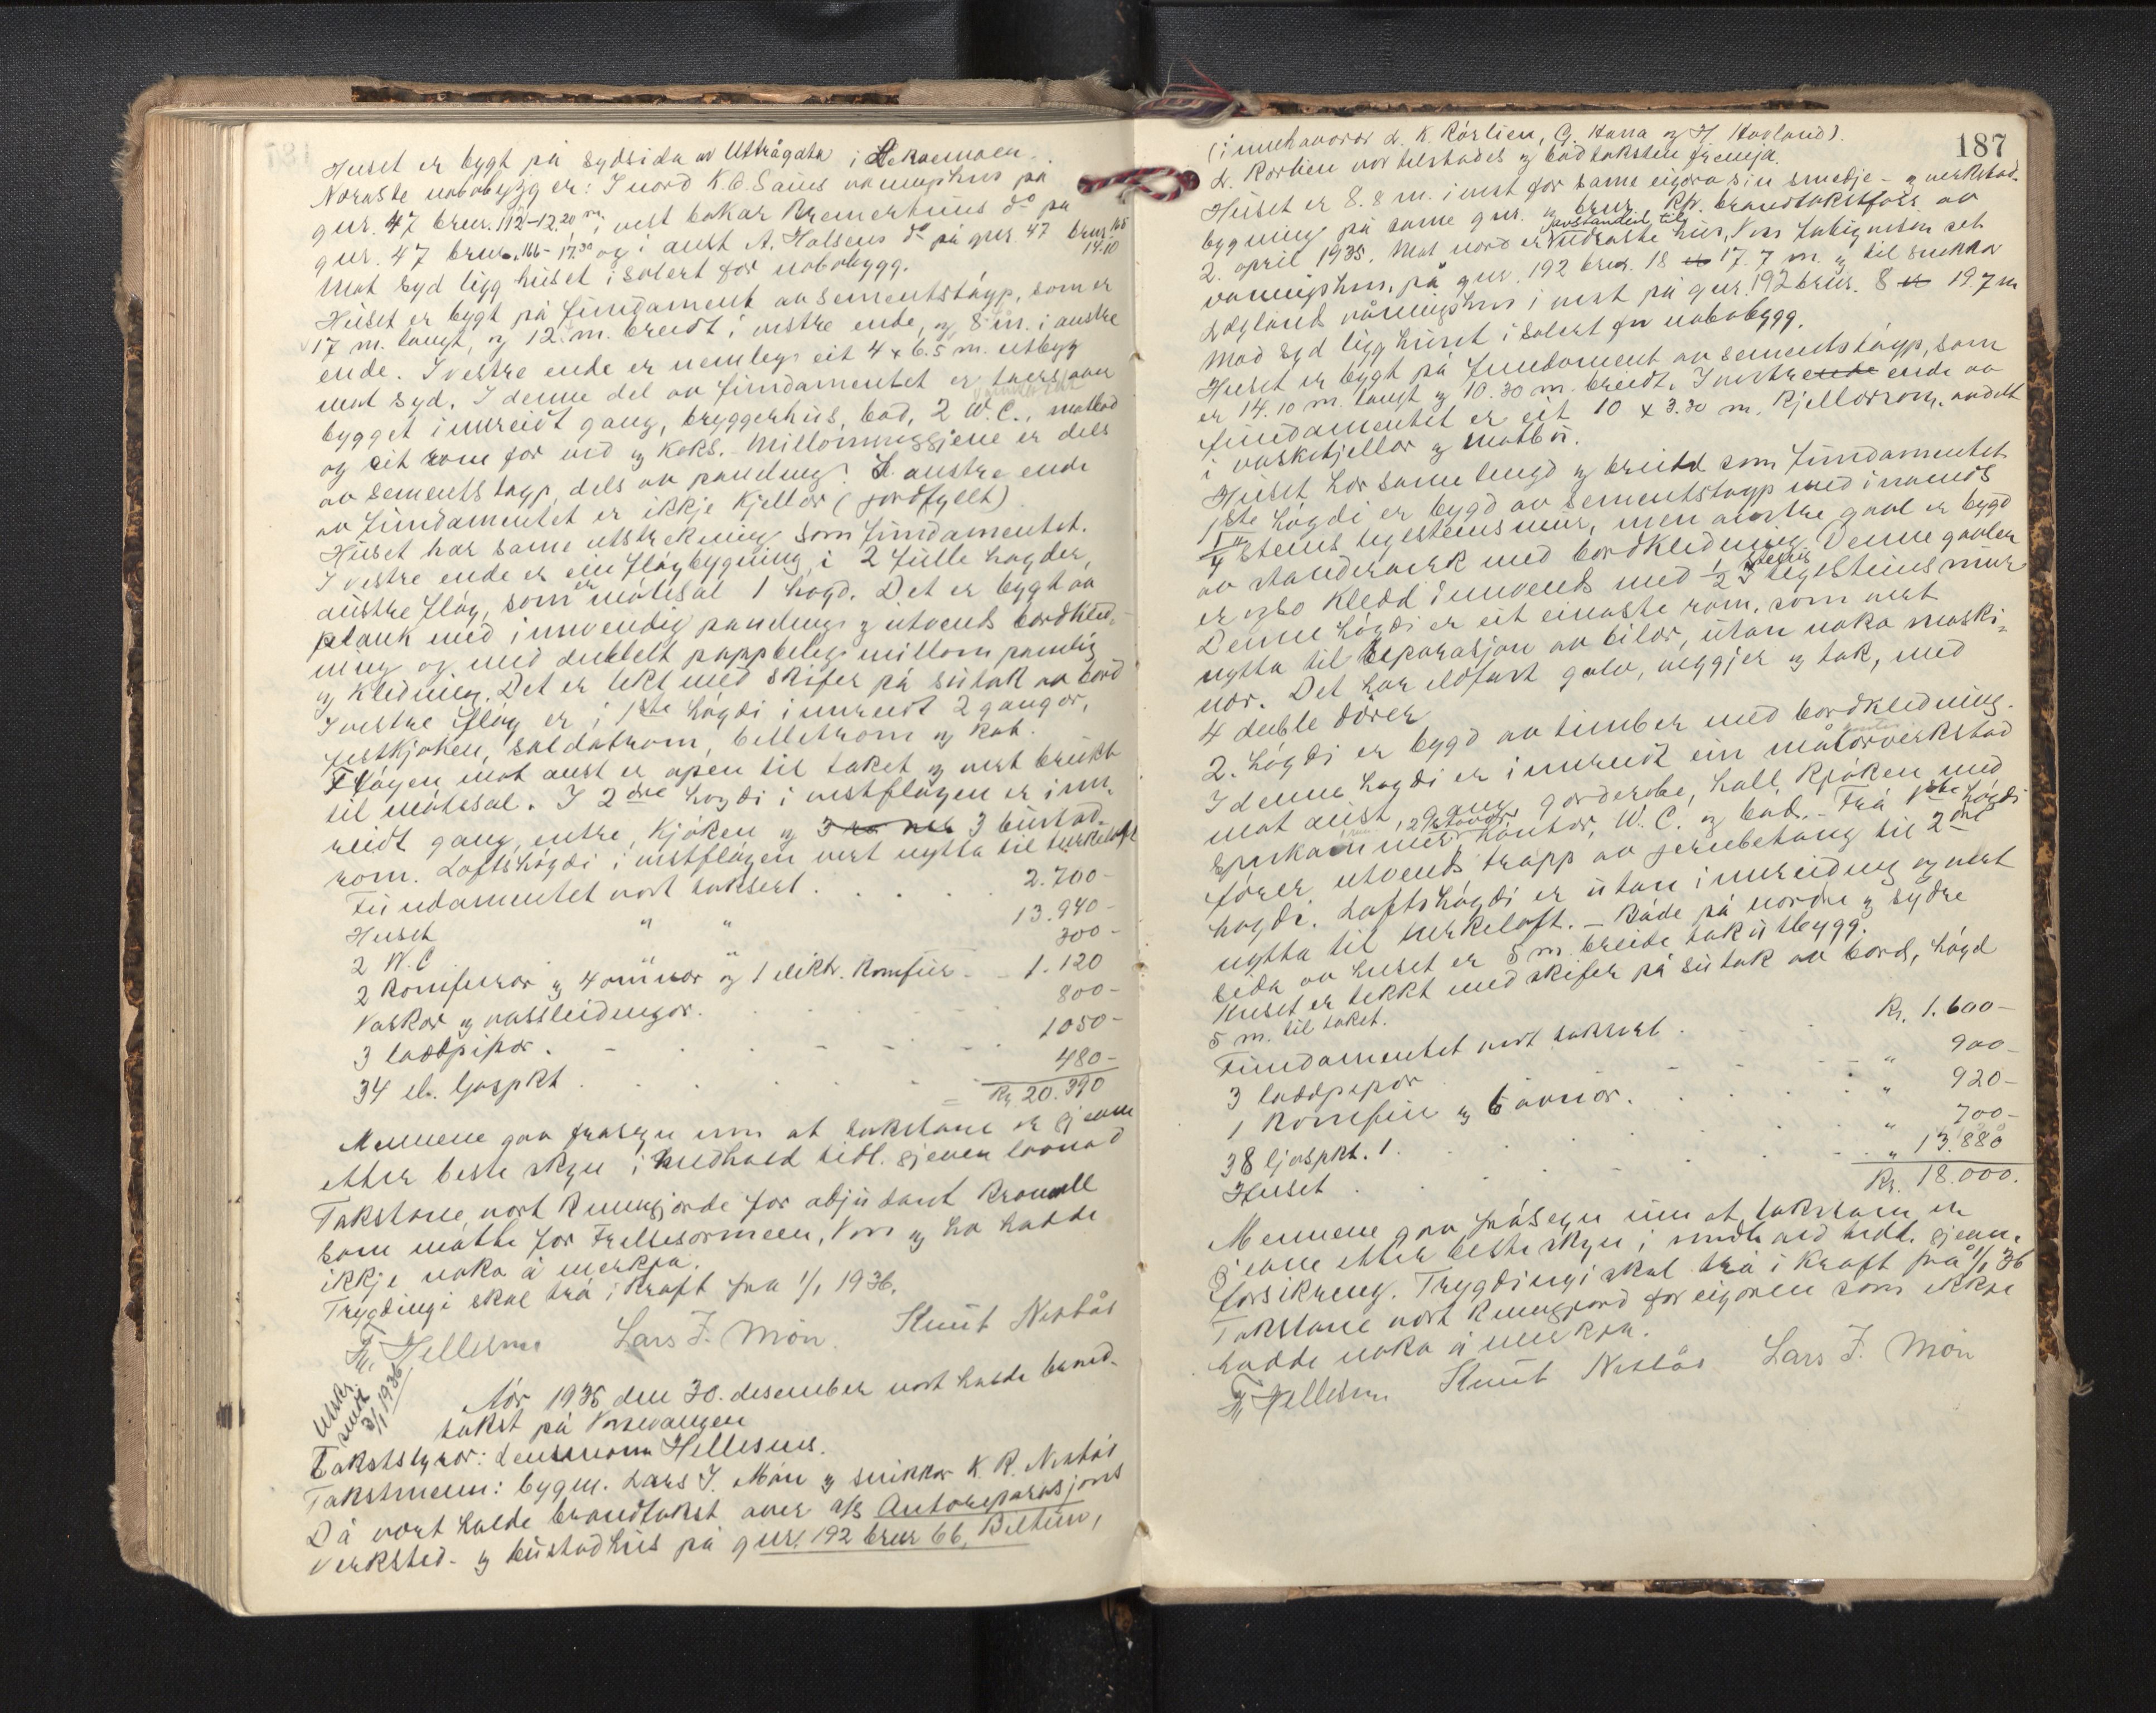 Huset er bygt på sydsida av Uttrågata i
Næraste nabobygg er: I nord K. G. Saues våningshus på
gnr. 47 brnr. 112 - 12.20 m, i vest bakar Bremerthuns do på
gnr. 47 brnr. 166 - 17.30 og i aust A. Halsens do på gnr. 47 brnr. 165
14.10
Mot syd ligg huset isolert for nabobygg.
Huset er bygt på fundament av sementstøyp, som er
17 m. langt, og 12 m. breidt i vestre ende, og 8 m. i austre
ende. I vestre ende er nemleg eit 4 x 6.5 m. utbygg
mot syd. I denne del av fundamentet er
bygget innreidt gang, bryggerhus, bad, 2 W.C., matbod
og eit rom for ved og koks. Millomveggjene er dels
av sementstøyp, dels av paneling. I austre ende
av fundamentet er ikkje kjellar (jordfyllt)
Huset har same utstrekning som fundamentet.
I vestre ende er ein fløybygning i 2 fulle høgder,
austre fløy, som er møtesal 1 høgd. Det er bygt av
plank med innvendig paneling og utvends bordkled-
ning og med dubbelt pappbeleg millom paneling
og kledning. Det er tekt med skifer på sutak av bord
I vestre fløy er i 1ste høgdi innreidt 2 gangor,
festkjøken, soldatrom, billetrom og kot.
Fløyen mot aust er open til taket og vert brukt
til møtesal. I 2dre høgdi i vestfløyen er inn-
reidt gang, entre, kjøken og 3 bustad-
rom. Loftshøgdi i vestfløyen vert nytta til turkeloft
Fundamentet vart taksert . . . . . 2.700 -
Huset " " 13.940 -
2 W.C. " 300 -
2 komfurar og 4 omnar og 1 elektr. komfur - 1.120
Vaskar og vassleidningar. . . . . 800 -
3 laddpipor . - . . - - . 1050 -
34 el. ljospkt . . . . . . 480 -
= Kr. 20.390
Mennene gav fråsegn um at takstane er gjevne
etter beste skyn i medhald tidl. gjeven lovnad
Takstane vart kunngjorde for adjutant
som møtte for Frelsesarmeen, Voss og ho hadde
ikkje noko å merkja.
Trygdingi skal trå i kraft fra 1/1 1936.
Hellesnes Lars J. Møn Knut Nesbås
Utskr.
sendt
3/1 1936
År 1935 den 30. desember vart halde brand-
takst på Vossevangen
Takststyrar: lensmann Hellesnes.
Takstmenn: bygm. Lars J. Møn og snikkar K. R. Nesbås
Då vart halde brandtakst over a/s Autoreparasjons
verksted- og bustadhus på gnr. 192 brnr 66, Biltun,
187
(innehavarar L. K. Rørlien, G. Hana og H. Havland).
L. Rørlien var tilstades og bad taksten fremja.
Huset er 8.8 m. i vest for same eigara sin smedje- og verkstad-
bygning på same gnr. og brnr. Kfr. brandtakstforr. av
2. april 1935. Mot nord er avstanden til næraste hus, Voss
våningshus, på gnr. 192 brnr. 18 17.7 m. og til snikkar
våningshus i vest på gnr. 192 brnr. 8 19.7 m
Mod syd ligg huset isolert for nabobygg.
Huset er bygt på fundament av sementstøyp, som
er 14.10 m. langt og 10.30 m. breidt. I vestre ende ende av
fundamentet er eit 10 x 3.30 m. kjellarrom, avdelt
i vaskekjellar og matbu.
Huset har same lengd og breidd som fundamentet
1ste høgdi er bygd av sementstøyp med innvends
1/4 steins teglsteinsmur, men austre gavl er bygd
av standerverk med bordkledning. Denne gavlen
er også kledd innvends med 1/2 steins teglsteinsmur
Denne høgdi er eit einaste rom, som vert
nytta til reparasjon av bilar, utan noko maski-
nor. Det har eldfast golv, veggjer og tak, med
4 duble dører
2. høgdi er bygd av timber med bordkledning.
I denne høgdi er innreidt ein målarverkstad
mot aust, gang, garderobe, hall, kjøken med
spiskammer, 2 stover, kontor, W.C. og bad. - Frå 1ste høgdi
fører utvends trapp av jernbetong til 2dre
høgdi. Loftshøgdi er utan innreiding og vert
nytta til turkeloft. - Både på nordre og sydre
sida av huset er 5 m. breide takutbygg.
Huset er tekkt med skifer på sutak av bord, høgd
5 m. til taket.
Fundamentet vart taksert . - . Kr. 1.600 -
3 laddpipor . . . " 900 -
1 komfur og 6 omnar. . . . . " 920 -
38 ljospkt. 1. . . . . " 700 -
Huset . . . . . " 13.880
Kr. 18.000.
Mennene gav fråsegn um at takstane er
gjevne etter beste skyn i medhald tidl. gjeven
forsikring. Trygdingi skal trå i kraft frå 1/1 36
Takstane vart kunngjord for eigaren som ikkje
hadde noko å merkja.
Hellesnes Knut Nesbås Lars J. Møn